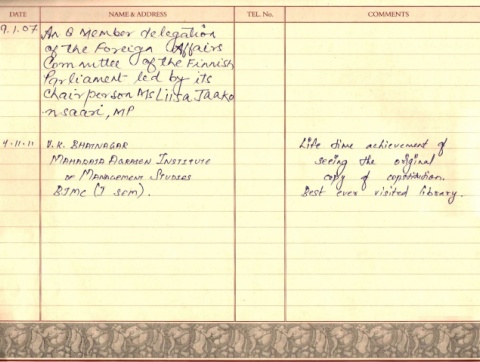 DATE NAME & ADDRESS TEL. No. COMMENTS
9.1.07 An 8 Member delegation
of the Foreign Affairs
Committee of the Finnish
Parliament led by its
Chairperson Ms Liisa Jaako
nsaari, MP
BHATNAGAR
MAHARAJA AGRASEN INSTITUTE
OF MANAGEMENT STUDIES
BJMC (I SEM).
Life time achievement of
seeing the original
copy of constitution.
Best ever visited library.